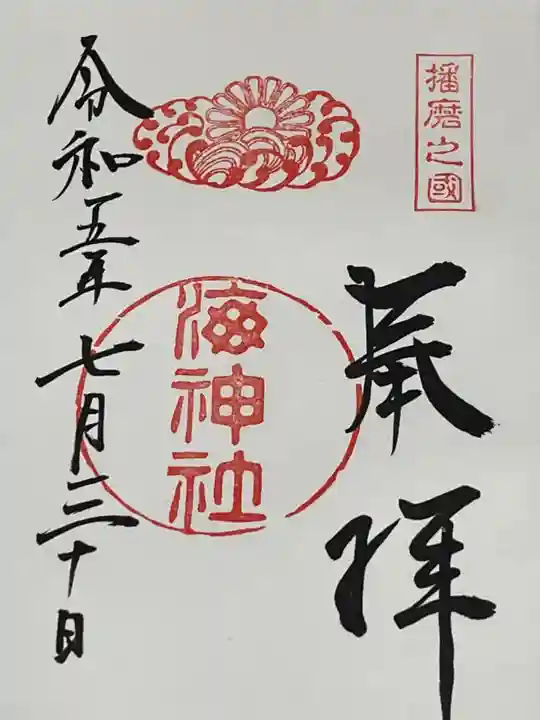 播磨之國
奉拝
海神社
令和五年七月三十日